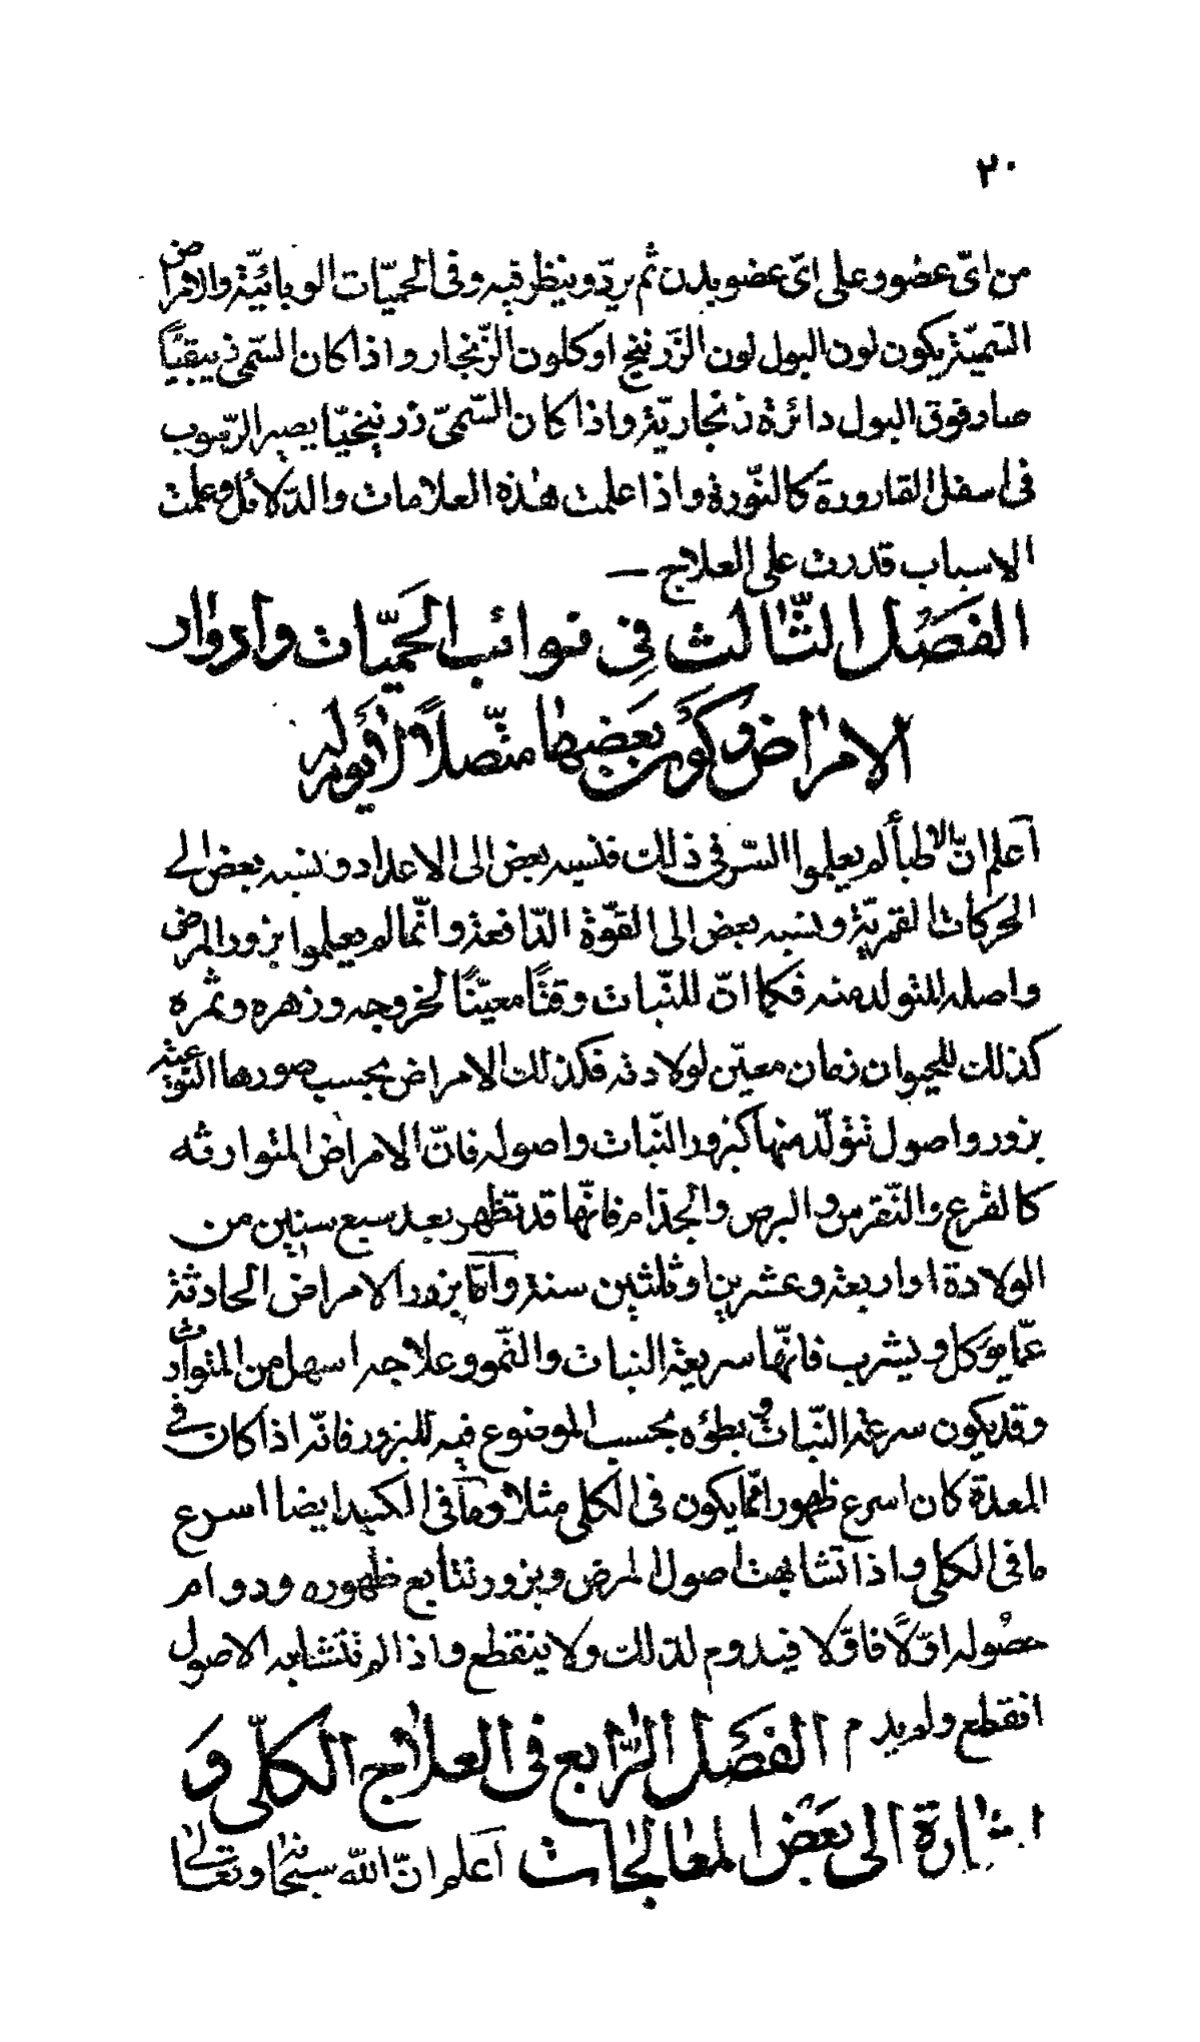 ٢٠
من ایّ عضو وعلی ایّ عضو یدن ثم یردّ وینظر فیه وفی الحمیّات الوبائیّة والامراض
السّمیّة یکون لون البول لون الزّرنیخ او کلون الزّنجار واذا کان السّمی زیبقیّاً
صار فوق البول دائرة زنجاریّة واذا کان السّمیّ زرنیخیّا یصیر الرّسوب
فی اسفل القارورة کالنّورة واذا علمت هذه العلامات والدّلائل وعلمت
الاسباب قدرت علی العلاج —
الفَصْل الثّالث فِی نوائب الحَمیّات وادوار
الامراض وکَون بَعَضِها متّصلاً لا یوم له
اَعلم انّ الاطبأ لم یعلموا السّر فی ذلك فنسبه بعض الی الاعداد ونسبه بعض الی
الحرکات القمریّة ونسبه بعض الی القوّة الدّافعة وانّما لم یعلموا بزور المرض
واصله المتولد منه فکما انّ للنّبات وقتًا معیّنًا لخروجه وزهره وثمره
کذلك للحیوان زمان معیّن لولادته فکذلك الامراض بحسب صورها النّوعیّة
بزور واصول تتولّد منها کبزور النّبات واصوله فانّ الامراض المتوارثه
کالقرع والنّقرس والبرص والجذام فانّها قد تظهر بعد سبع سنین من
الولادة او اربعة وعشرین او ثلثین سنة وامّا بزور الامراض الحادثة
عمّا یؤکل ویشرب فانّها سریعة النبات والنّمو وعلاجه اسهل من المتوارث
وقد یکون سرعة النّبات وبطؤه بحسب الموضوع فیه للبزور فانّه اذا کان فی
المعدة کان اسرع ظهورا ممّا یکون فی الکلی مثلا وما فی الکبد ایضا اسرع
ما فی الکلی واذا تشابهت اصول المرض وبزور تتابع ظهوره ودوام
حصُوله اوّلًا فاوّلا فیدوم لذلك ولا ینقطع واذا لم تتشابه الاصول
انقطع ولم یدم الفَصَل الرّابع فی العلاج الکلّی وَ
اشارة الی بَعَض المعالجات اَعلم انّ اللّه سبحانه وتعالی